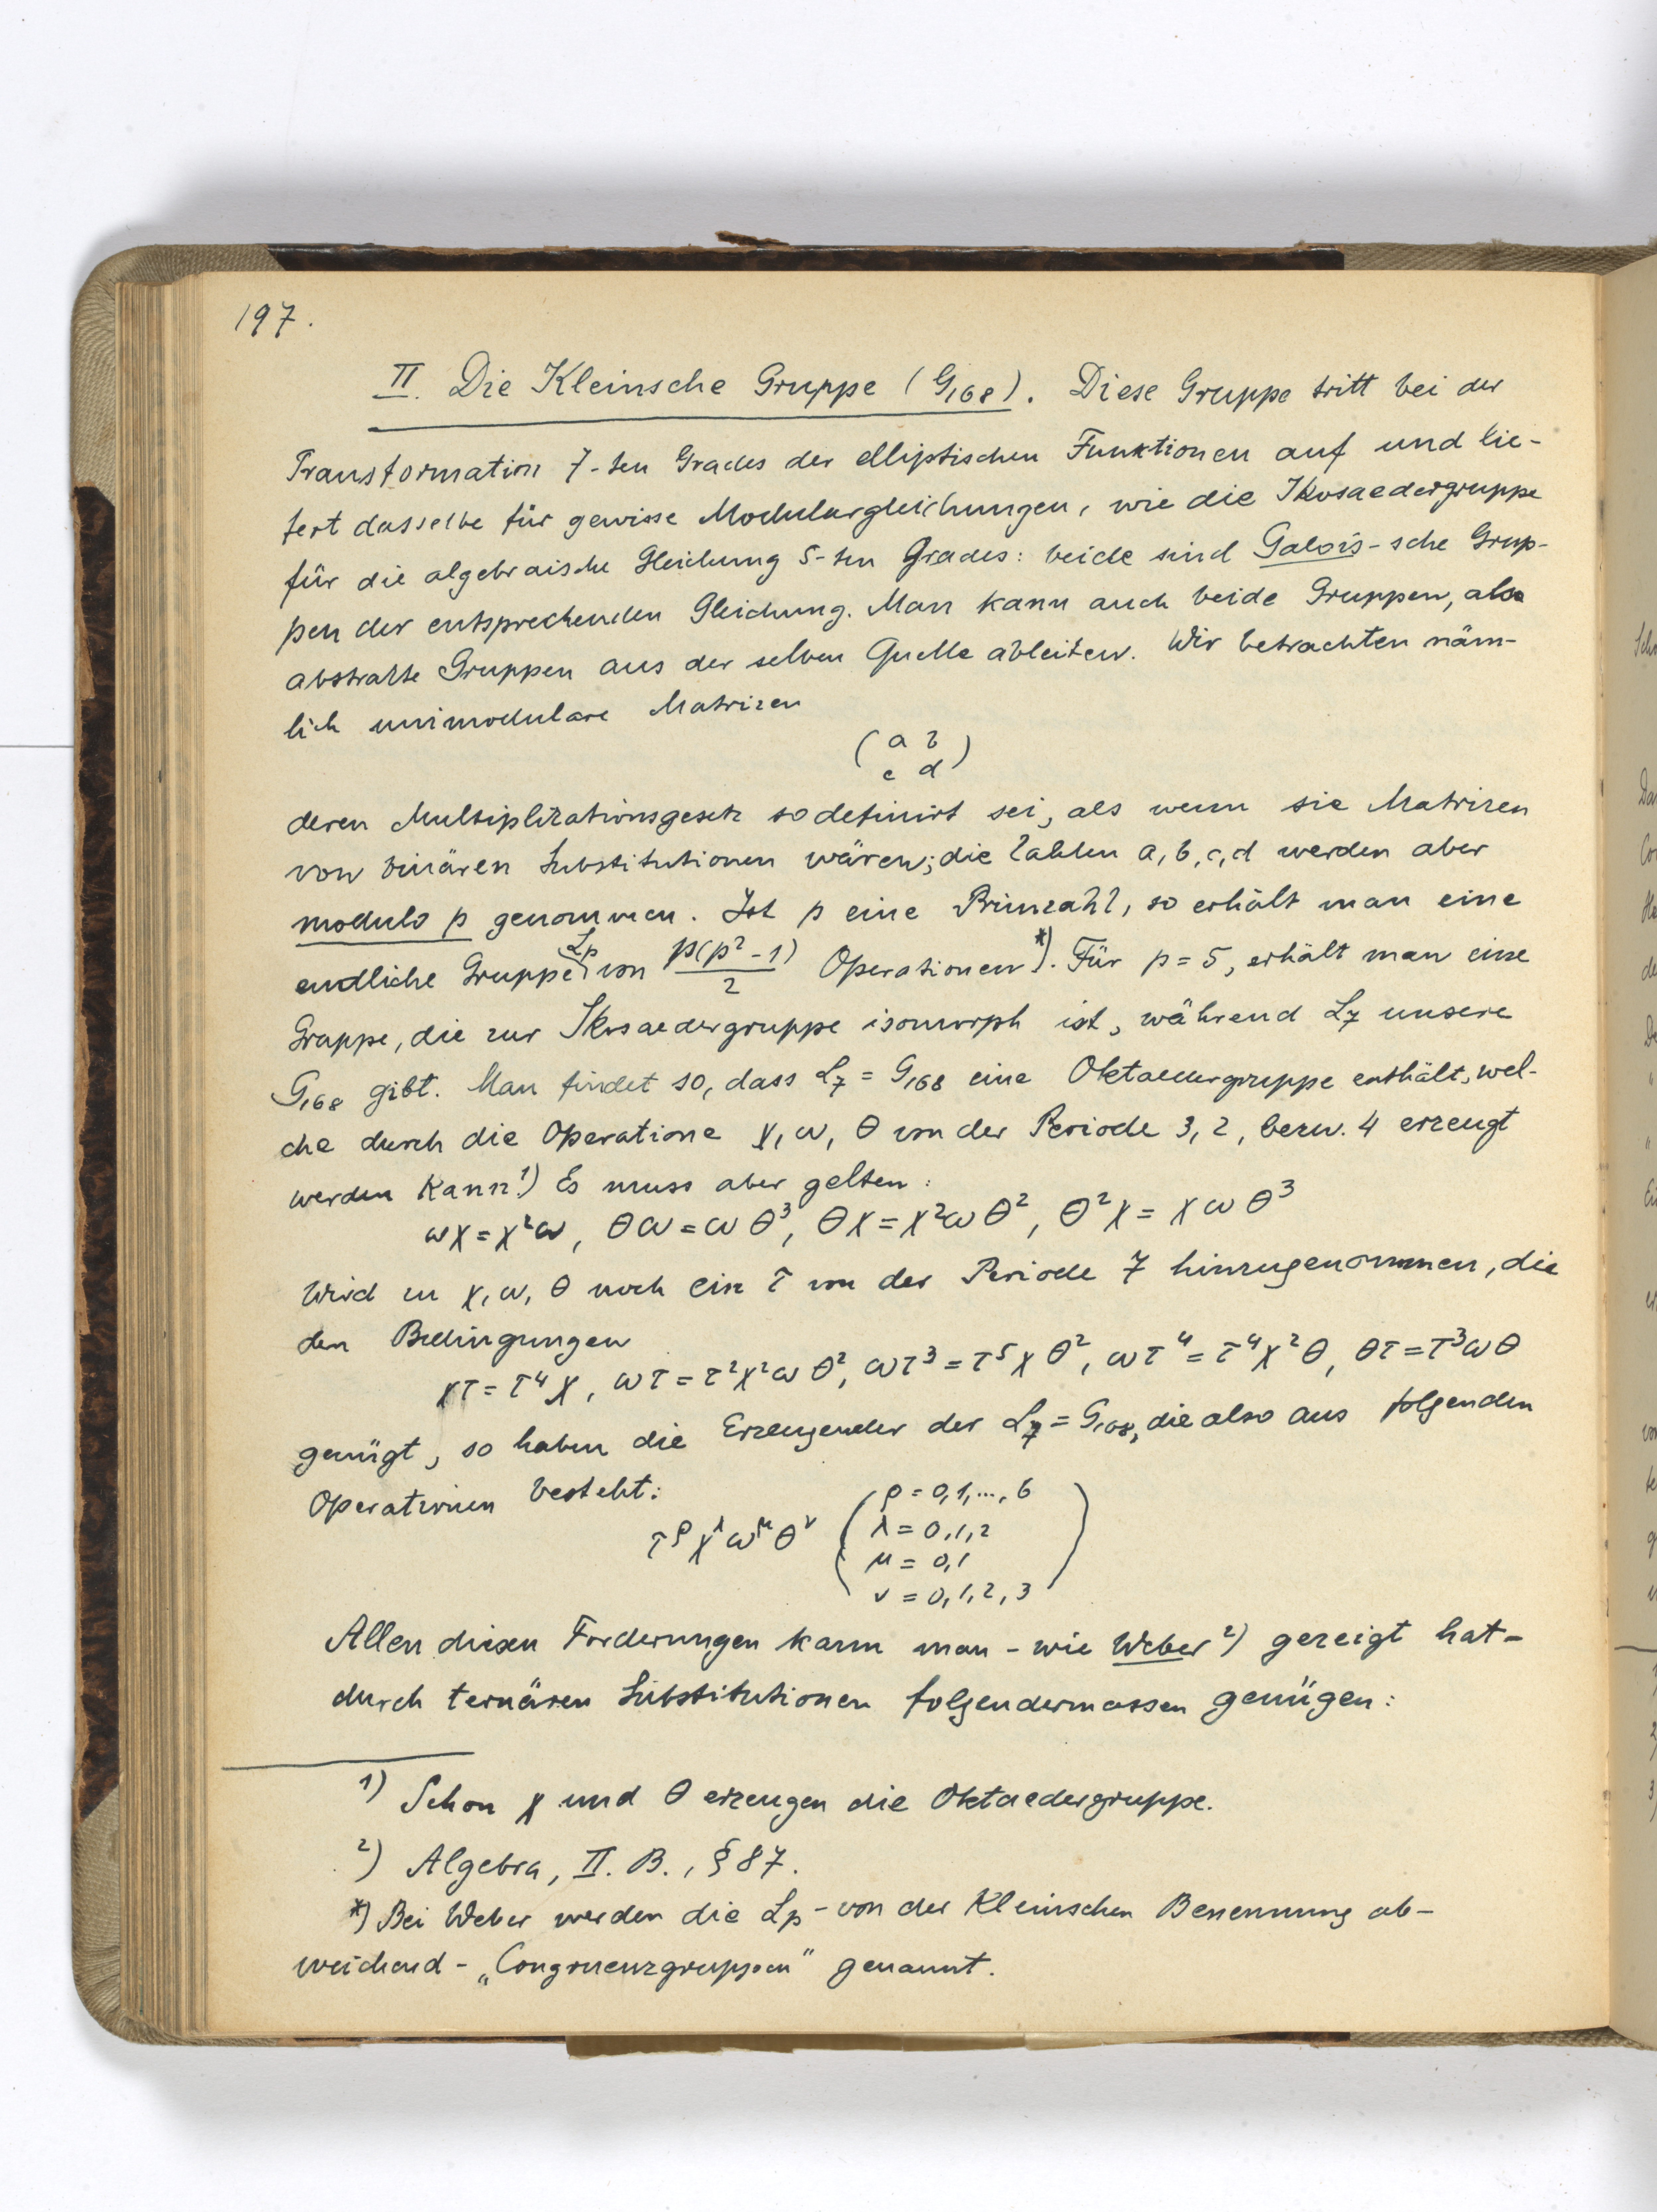 197.
II. Die Kleinsche Gruppe (G₁₆₈). Diese Gruppe tritt bei der
Transformation 7-ten Grades der elliptischen Funktionen auf und lie-
fert dasselbe für gewisse Modulargleichungen, wie die Ikosaedergruppe
für die algebraische Gleichung 5-ten Grades: beide sind Galois-sche Grup-
pen der entsprechenden Gleichung. Man kann auch beide Gruppen, als
abstrakte Gruppen aus der selben Quelle ableiten. Wir betrachten näm-
lich unimodulare Matrizen
( a b )
c d
deren Multiplikationsgesetz so definirt sei, als wenn sie Matrizen
von binären Substitutionen wären; die Zahlen a, b, c, d werden aber
modulo p genommen. Ist p eine Primzahl, so erhält man eine
endliche Gruppe Lp von p(p²-1)/2 Operationen*). Für p = 5, erhält man eine
Gruppe, die zur Ikosaedergruppe isomorph ist, während L₇ unsere
G₁₆₈ gibt. Man findet so, dass L₇ = G₁₆₈ eine Oktaedergruppe enthält, wel-
che durch die Operatione χ, ω, θ von der Periode 3, 2, bezw. 4 erzeugt
werden kann¹) Es muss aber gelten:
ωχ = χ²ω, θω = ωθ³, θχ = χ²ωθ², θ²χ = χωθ³
Wird zu χ, ω, θ noch ein τ von der Periode 7 hinzugenommen, die
den Bedingungen
χτ = τ⁴χ, ωτ = τ²χ²ωθ², ωτ³ = τ⁵χθ², ωτ⁴ = τ⁴χ²θ, θτ = τ³ωθ
genügt, so haben die Erzeugender der L₇ = G₁₆₈, die also aus folgenden
Operationen besteht:
τ^ρ χ^λ ω^μ θ^ν ( ρ = 0, 1, ..., 6
λ = 0, 1, 2
μ = 0, 1
ν = 0, 1, 2, 3 )
Allen diesen Forderungen kann man - wie Weber²) gezeigt hat -
durch ternären Substitutionen folgendermassen genügen:
¹) Schon χ und θ erzeugen die Oktaedergruppe.
²) Algebra, II. B., § 87.
*) Bei Weber werden die Lp - von der Kleinschen Benennung ab-
weichend - „Congruenzgruppen" genannt.